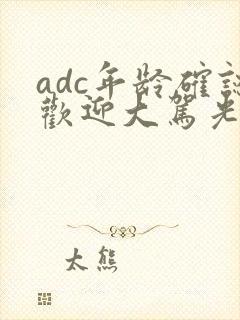 adc年龄確認
歡迎大駕光
太熊